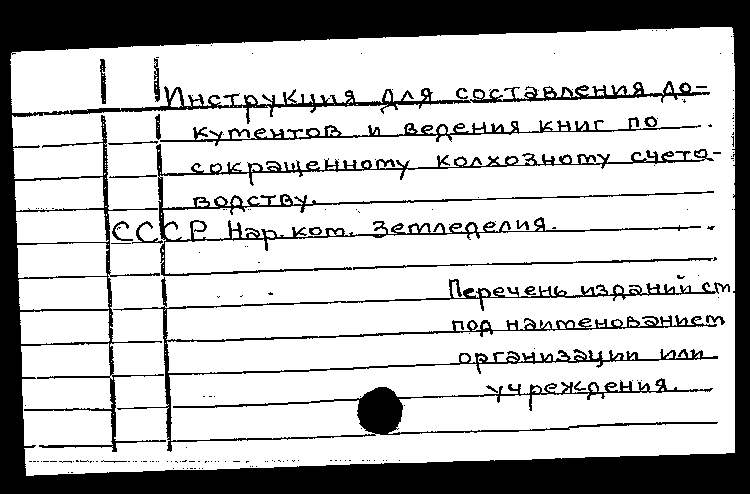 Инструкция для составления до-
кументов и ведения книг по
сокращенному колхозному счето-
водству.
СССР Нар. ком. Земледелия.
Перечень изданий ст.
под наименованием
организации или
учреждения.